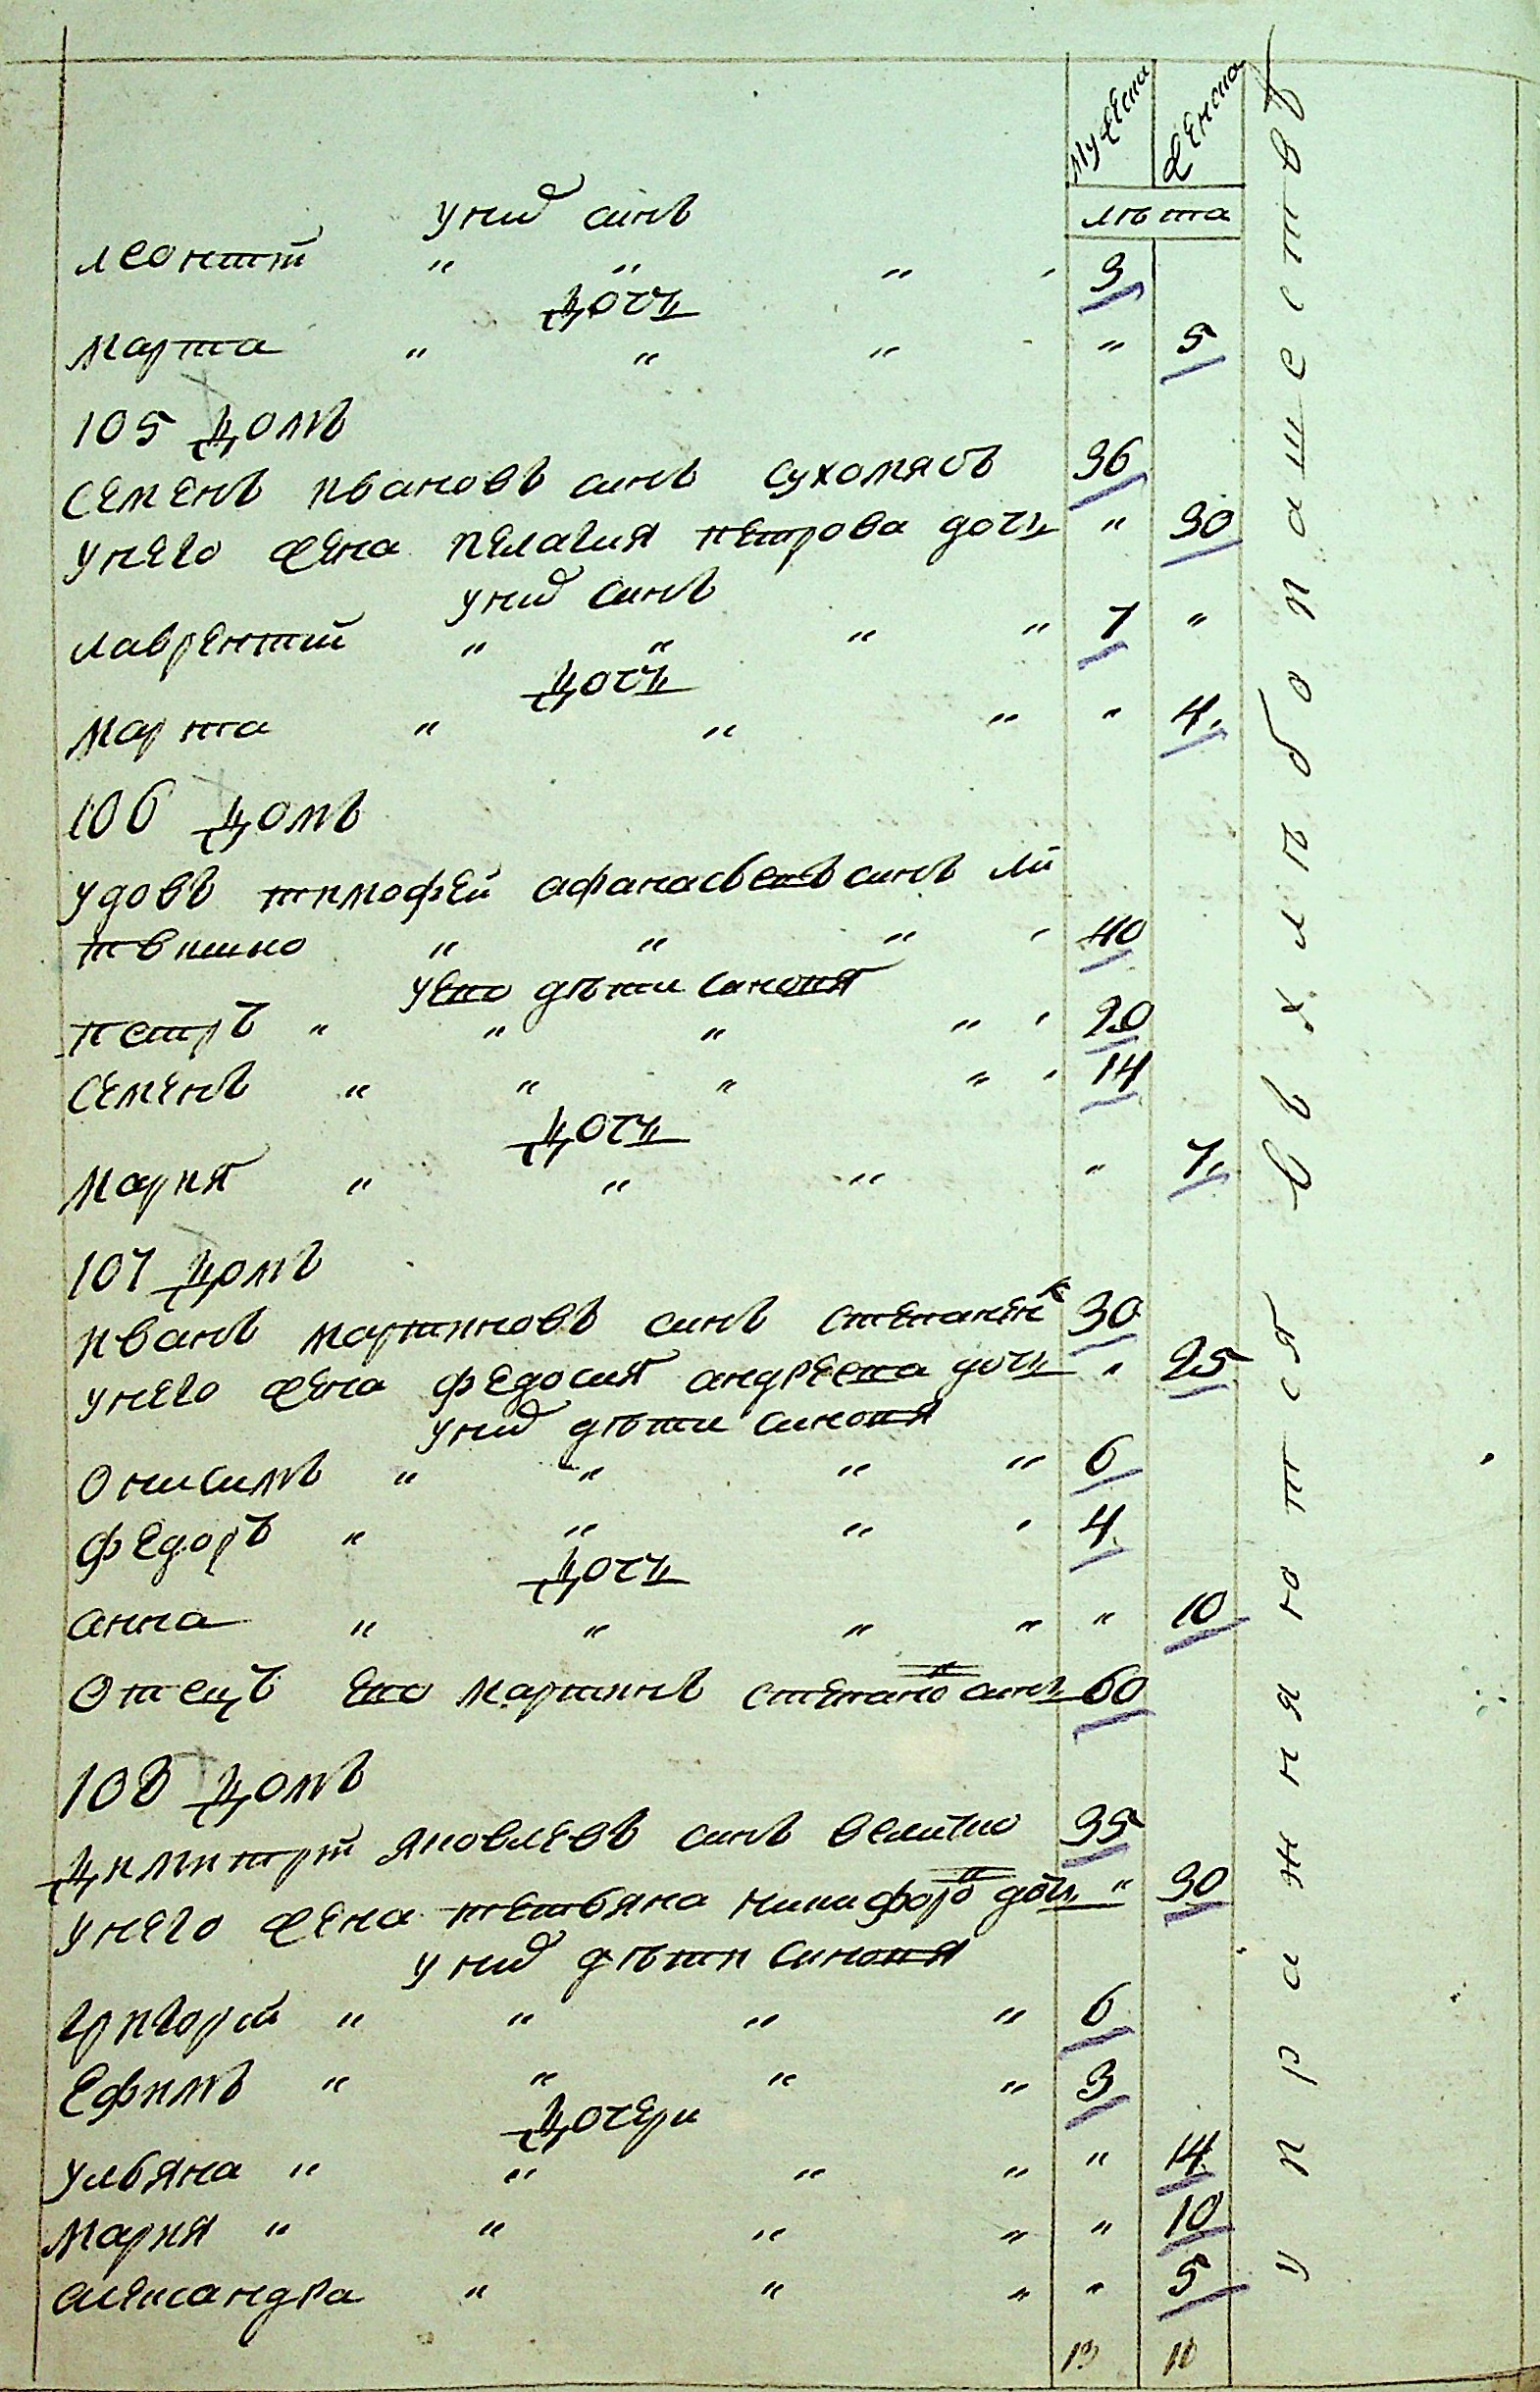 Мужеска Женска
лѣта
у них синъ
леонтий " " " " 9
Дочь
Марта " " " " 5
105 Домъ
Семенъ Ивановъ синъ сухомясъ 36
у него жена Пелагия Петрова дочь " 30
у них синъ
лаврентий " " " " 7 "
Дочь
Марта " " " " 4
106 Домъ
удовъ тимофей афанасьевъ синъ ли
твинко " " " " 40
у его дѣти синовя
петръ " " " " " 20
Семенъ " " " " " 14
Дочь
Мария " " " " 7
107 Домъ
Иванъ мартиновъ синъ степаненк 30
у него жена федосия андреева дочь " 25
у них дѣти синовя
Онисимъ " " " " 6
федоръ " " " " 4
Дочь
анна " " " " " 10
Отецъ его Мартинъ степано синъ 60
108 Домъ
Димитрий яковлевъ синъ величко 35
у него жена тетьяна никифоро дочь " 30
у них дѣти синовя
григорий " " " " 6
Ефимъ " " " " 3
Дочери
ульяна " " " " " 14
Мария " " " " " 10
александра " " " " 5
13 10
упражняются в хлѣбопашествѣ